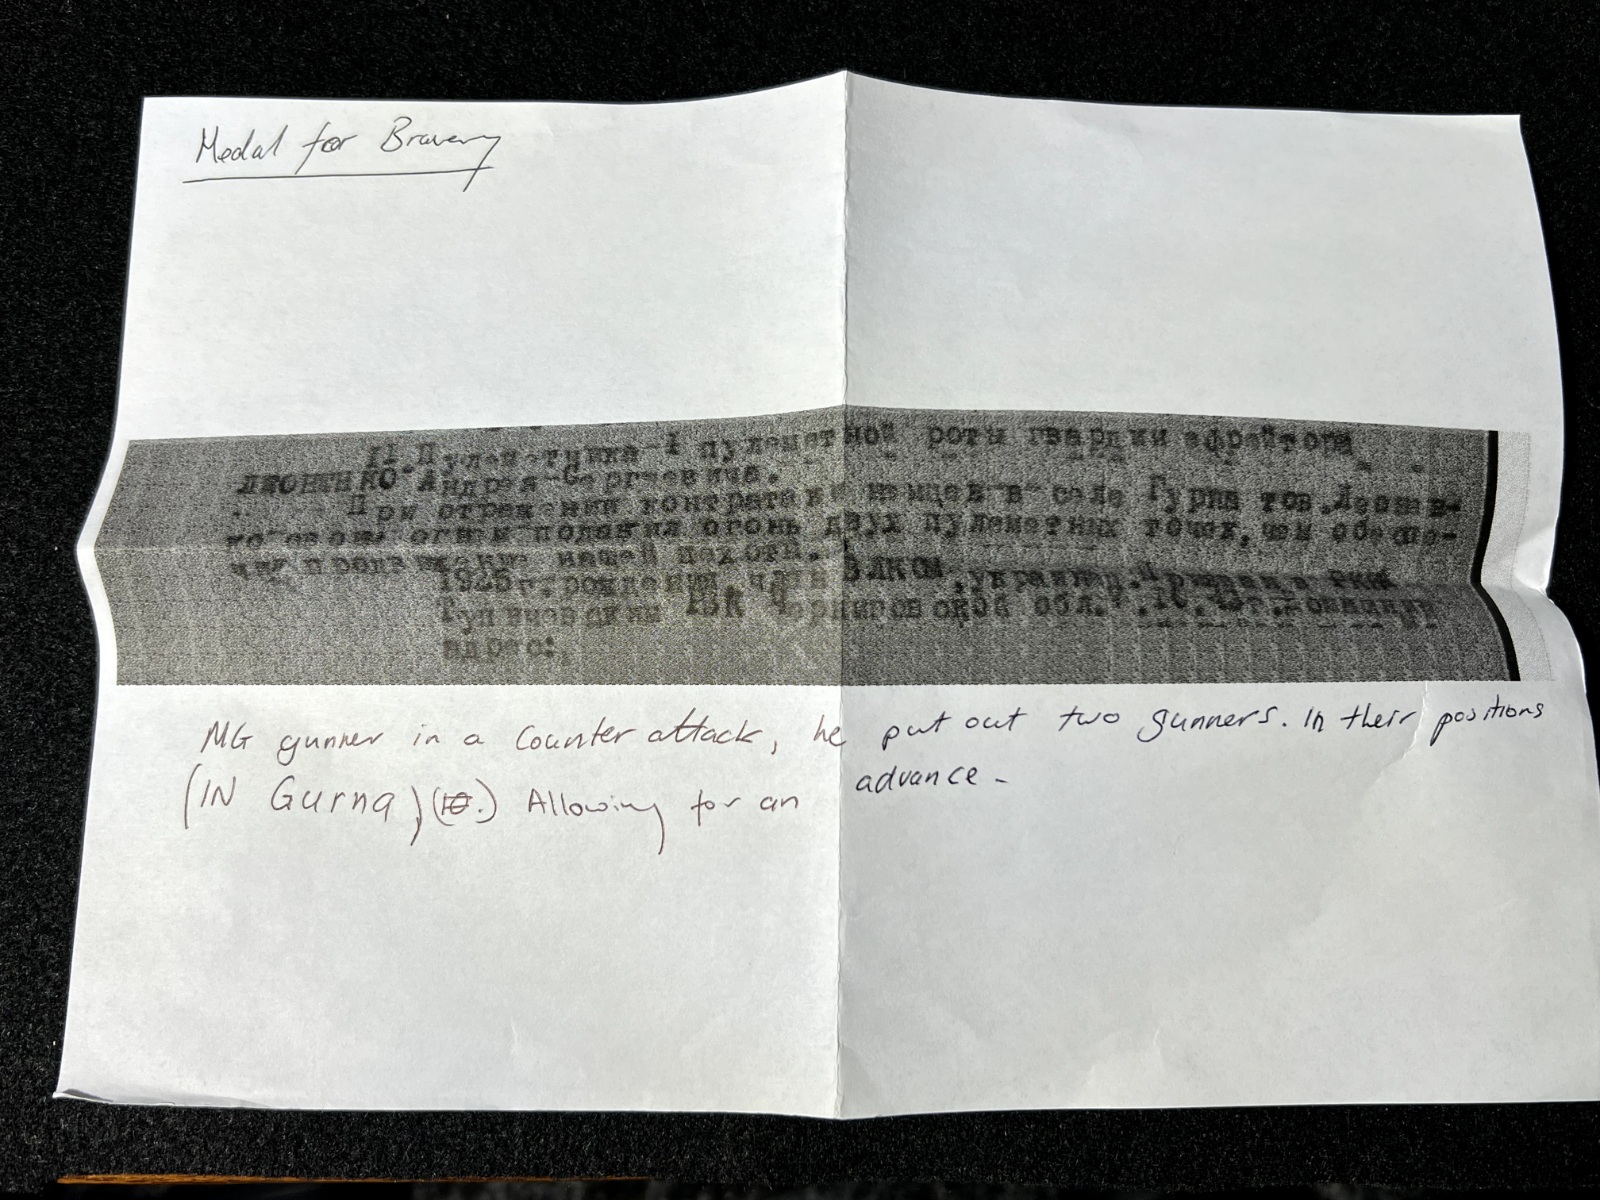 Medal for Bravery
11.Пулеметчика-1 пулеметной роты гвардии ефрейтора
ЛЕОНЕНКО Андрея Сергеевича.
При отражении контратаки немцев в селе Гурна тов.Леонен-
ко своим огнем подавил огонь двух пулеметных точек, чем обеспе-
чил продвижение нашей пехоты.
1925 г.рождения, член ВЛКСМ, украинец. Призван в РККА
РВК Черниговской обл. Домашний
адрес:
MG gunner in a counter attack, he put out two gunners. In their positions
(IN Gurna) Allowing for an advance -